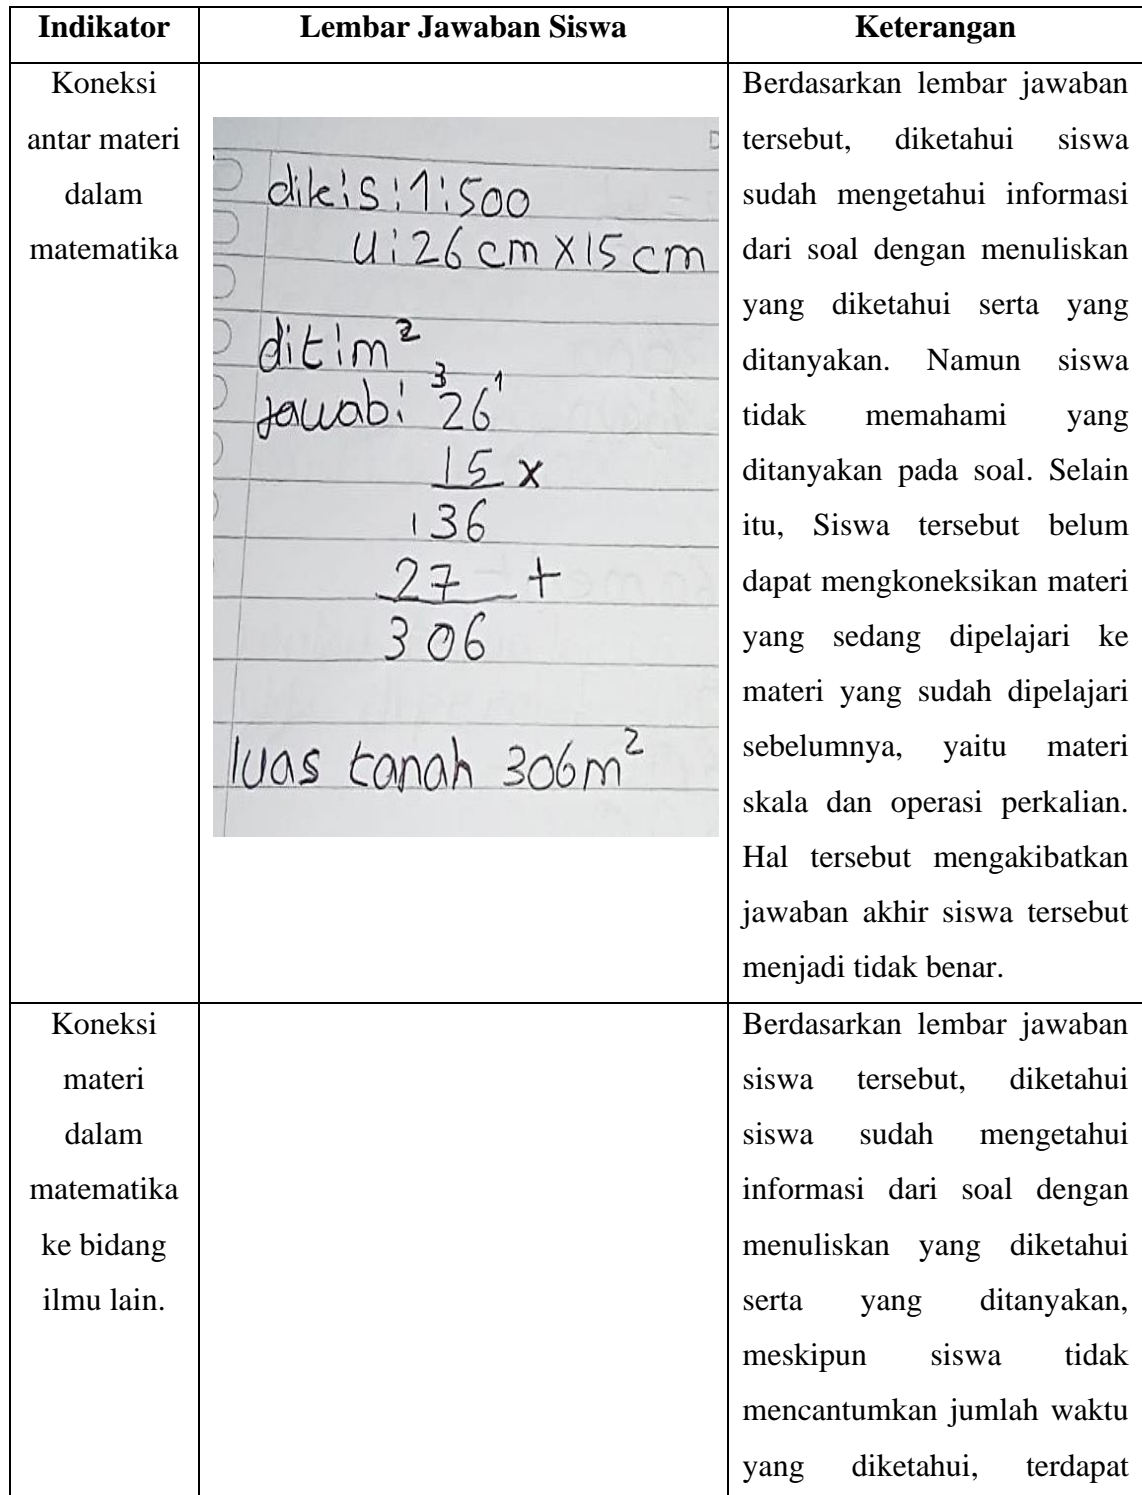 Indikator
Lembar Jawaban Siswa
Keterangan
Koneksi
antar materi
dalam
matematika
dik:s:1:500
u:26 cm x 15 cm
dit:m²
Jawab: ³26¹
15 x
136
27 +
306
luas tanah 306m²
Berdasarkan lembar jawaban
tersebut, diketahui siswa
sudah mengetahui informasi
dari soal dengan menuliskan
yang diketahui serta yang
ditanyakan. Namun siswa
tidak memahami yang
ditanyakan pada soal. Selain
itu, Siswa tersebut belum
dapat mengkoneksikan materi
yang sedang dipelajari ke
materi yang sudah dipelajari
sebelumnya, yaitu materi
skala dan operasi perkalian.
Hal tersebut mengakibatkan
jawaban akhir siswa tersebut
menjadi tidak benar.
Koneksi
materi
dalam
matematika
ke bidang
ilmu lain.
Berdasarkan lembar jawaban
siswa tersebut, diketahui
siswa sudah mengetahui
informasi dari soal dengan
menuliskan yang diketahui
serta yang ditanyakan,
meskipun siswa tidak
mencantumkan jumlah waktu
yang diketahui, terdapat